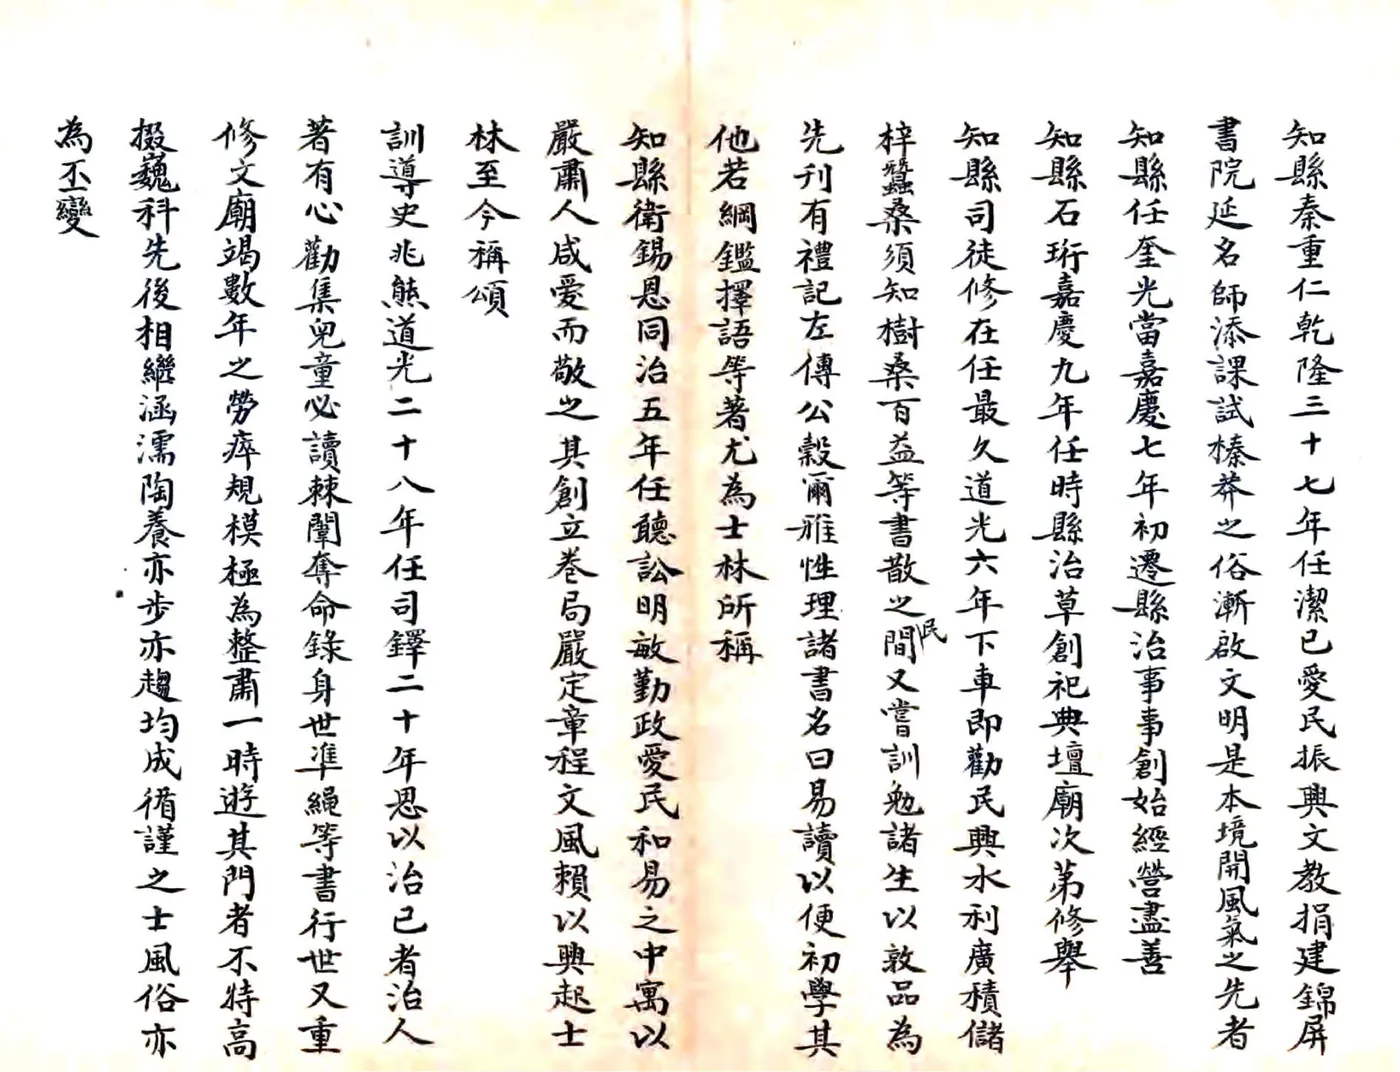 知縣秦重仁乾隆三十七年任潔已愛民振興文教捐建錦屏
書院延名師添課試榛莽之俗漸啟文明是本境開風氣之先者
知縣任奎光當嘉慶七年初遷縣治事事創始經營盡善
知縣石珩嘉慶九年任時縣治草創祀典壇廟次第修舉
知縣司徒修在任最久道光六年下車即勸民興水利廣積儲
梓蠶桑須知樹桑百益等書散之民間又嘗訓勉諸生以敦品為
先刊有禮記左傳公穀爾雅性理諸書名曰易讀以便初學其
他若綱鑑擇語等著尤為士林所稱
知縣衛錫恩同治五年任聽訟明敏勤政愛民和易之中寓以
嚴肅人咸愛而敬之其創立卷局嚴定章程文風賴以興起士
林至今稱頌
訓導史兆熊道光二十八年任司鐸二十年思以治已者治人
著有心勸集兒童必讀棘闈奪命錄身世準繩等書行世又重
修文廟竭數年之勞瘁規模極為整肅一時遊其門者不特高
掇巍科先後相繼涵濡陶養亦步亦趨均成循謹之士風俗亦
為丕變